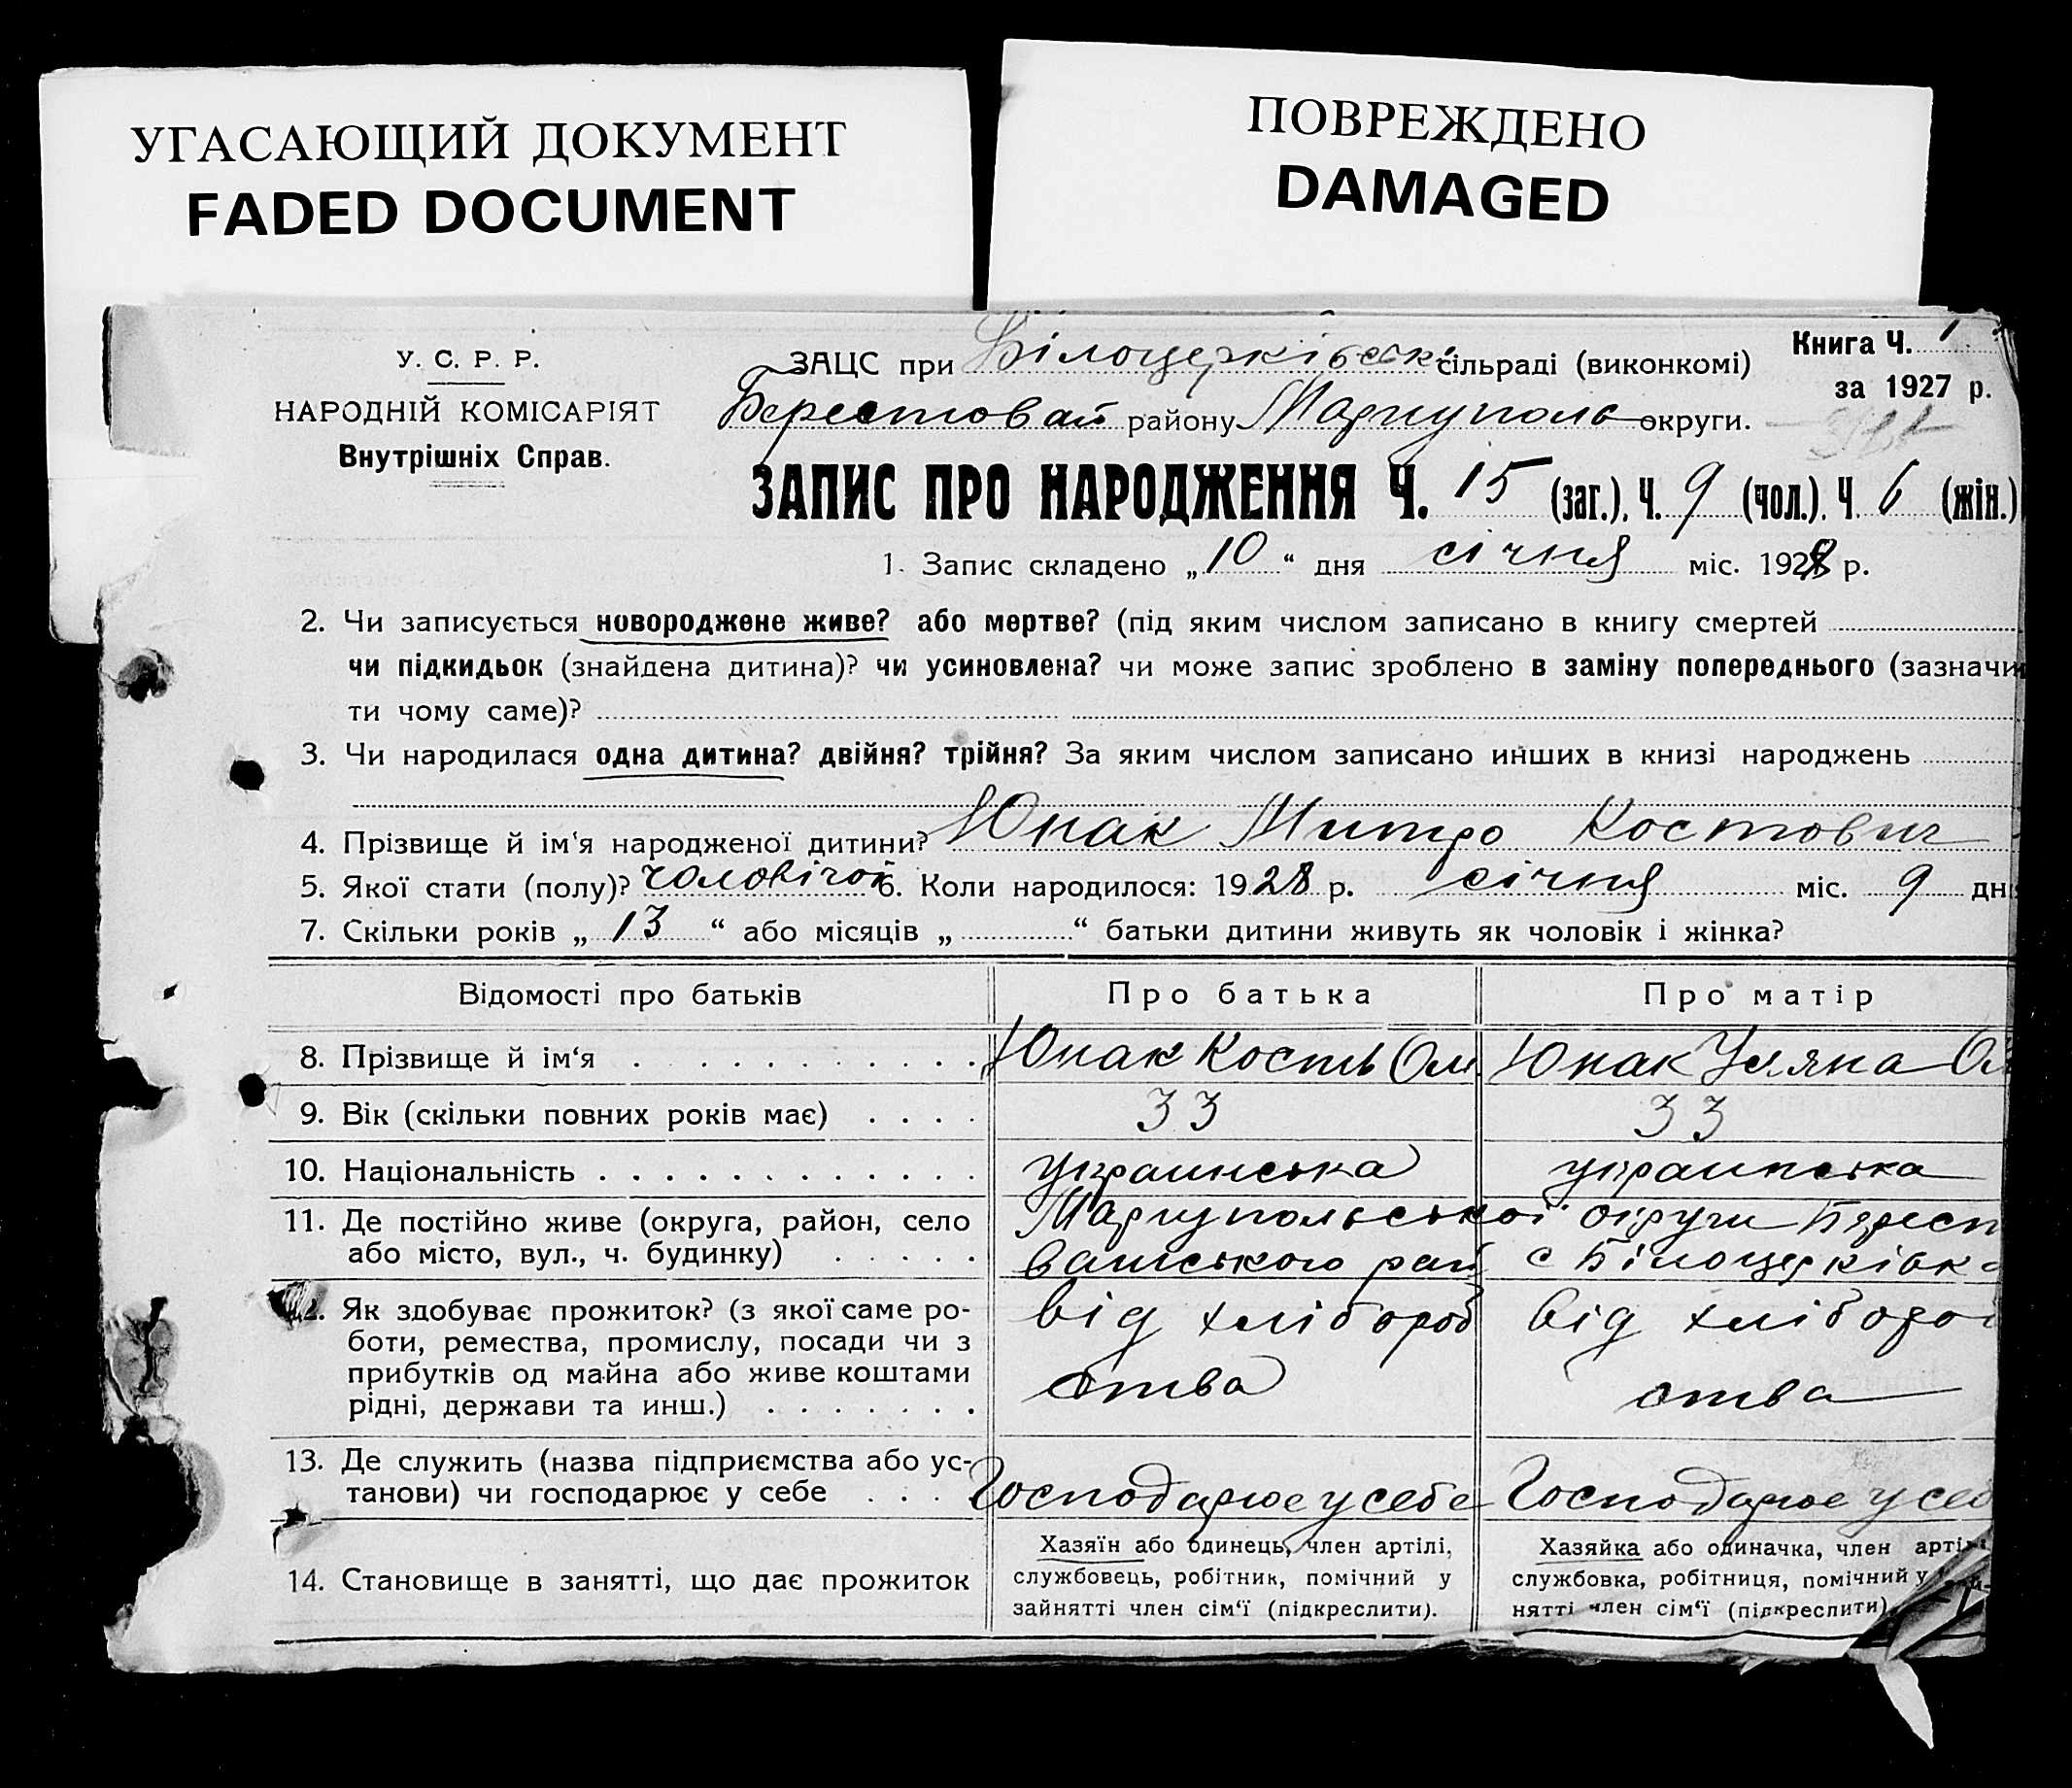 УГАСАЮЩИЙ ДОКУМЕНТ
FADED DOCUMENT
ПОВРЕЖДЕНО
DAMAGED
У. С. Р. Р.
НАРОДНІЙ КОМІСАРІЯТ
Внутрішніх Справ.
ЗАЦС при Білоцерківській сільраді (виконкомі)
Берестовай району Мариуполь округи.
Книга Ч. 1
за 1927 р.
ЗАПИС ПРО НАРОДЖЕННЯ Ч. 15 (заг.), Ч. 9 (чол.), Ч. 6 (жін.)
1. Запис складено „10“ дня січня міс. 1928 р.
2. Чи записується новороджене живе? або мертве? (під яким числом записано в книгу смертей
чи підкидьок (знайдена дитина)? чи усиновлена? чи може запис зроблено в заміну попереднього (зазначи
ти чому саме)?
3. Чи народилася одна дитина? двійня? трійня? За яким числом записано инших в книзі народжень
4. Прізвище й ім‘я народженої дитини? Юнак Митро Костович
5. Якої стати (полу)? чоловічої 6. Коли народилося: 1928 р. січня міс. 9 дн
7. Скільки років „13“ або місяців „ “ батьки дитини живуть як чоловік і жінка?
Відомості про батьків Про батька Про матір
8. Прізвище й ім‘я Юнак Кость Ом. Юнак Уляна
9. Вік (скільки повних років має) 33 33
10. Національність украинська украинська
11. Де постійно живе (округа, район, село Мариупольської округи Берест
або місто, вул., ч. будинку) ваиського рай с Білоцерківк
12. Як здобуває прожиток? (з якої саме ро- від хлібороб від хлібороб
боти, ремества, промислу, посади чи з
прибутків од майна або живе коштами ства ства
рідні, держави та инш.)
13. Де служить (назва підприємства або ус-
танови) чи господарює у себе Господарює у себе Господарює у себ
14. Становище в занятті, що дає прожиток
Хазяїн або одинець, член артілі,
службовець, робітник, помічний у
зайнятті член сім‘ї (підкреслити).
Хазяйка або одиначка, член артіл
службовка, робітниця, помічний у
нятті член сім‘ї (підкреслити)